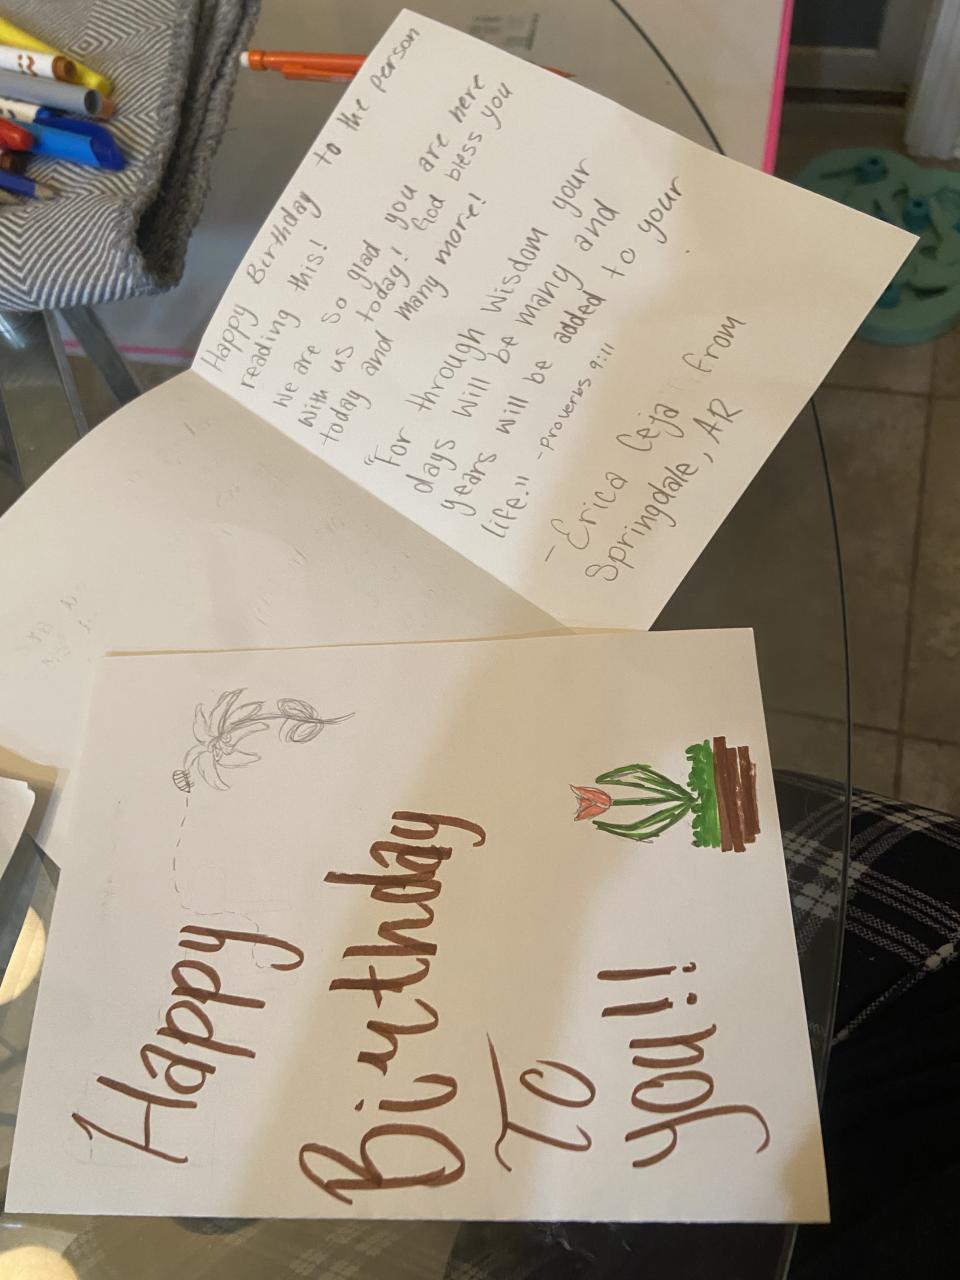 Happy Birthday to the person
reading this!
We are so glad you are here
with us today! God bless you
today and many more!
"For through Wisdom your
days will be many and
years will be added to your
life." -Proverbs 9:11
- Erica Ceja from
Springdale, AR
Happy
Birthday
To
you!!